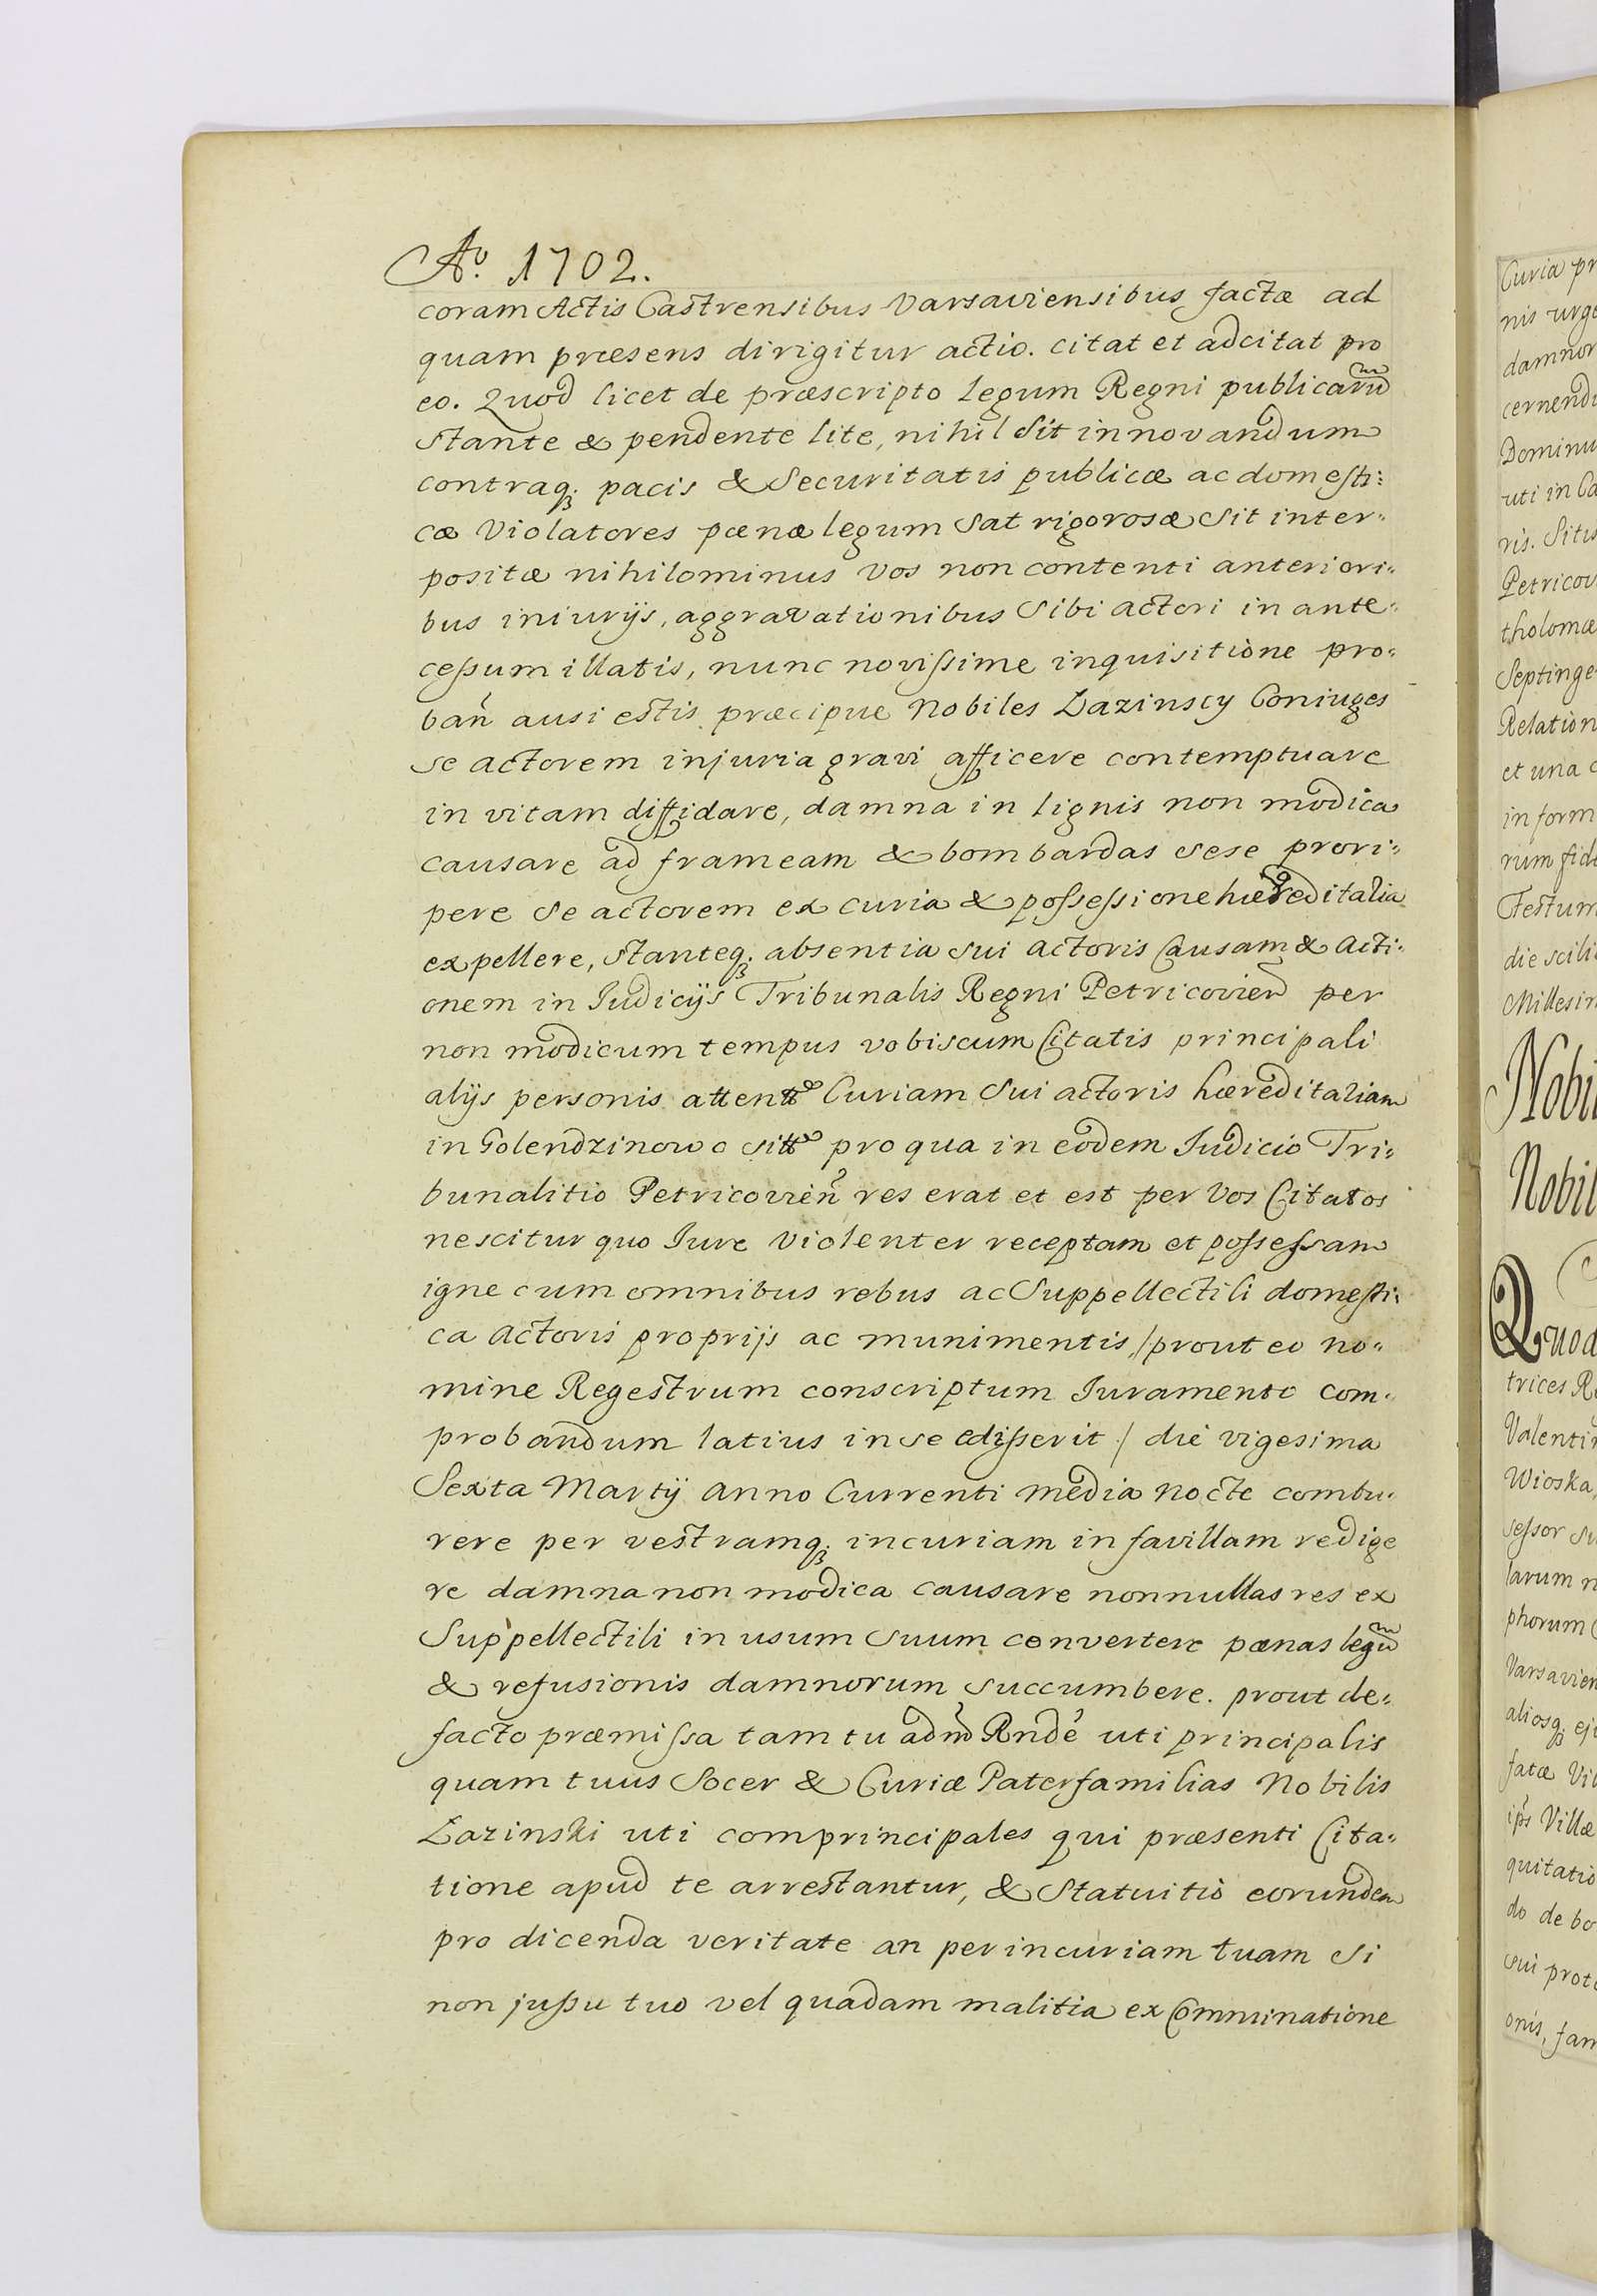 Aº. 1702.
coram Actis Castrensibus Varsaviensibus factæ ad
quam præsens dirigitur actio. citat et adcitat pro
eo. Quod licet de præscripto legum Regni publicarũ
stante & pendente lite, nihil sit innovandum
contraq; pacis & Securitatis publicæ ac domesti:
cæ Violatores pœnæ legum sat rigorosæ sit inter:
positæ nihilominus vos non contenti anteriori:
bus iniurijs, aggravationibus Sibi actori in ante:
cessum illatis, nunc novissime inquisitione pro:
bañ ausi estis præcipue Nobiles Łazinscy Coniuges
se actorem injuria gravi afficere contemptuare
in vitam diffidare, damna in lignis non modica
causare ad frameam & bombardas sese prori:
pere se actorem ex curia & possessione hæreditalia
expellere, stanteq; absentia sui actoris Causam & acti:
onem in Judicijs Tribunalis Regni Petricovieñ per
non modicum tempus vobiscum Citatis principali
alijs personis attentt Curiam Sui actoris hæreditaliam
in Golendzinowo sitt pro qua in eodem Judicio Tri:
bunalitio Petricovieñ res erat et est per Vos Citatos
nescitur quo Jure Violenter receptam et possessam
igne cum omnibus rebus ac Suppellectili domesti:
ca Actoris proprijs ac munimentis /prout eo no:
mine Regestrum conscriptum Juramento com:
probandum latius in se edisserit / die vigesima
Sexta Martij anno Currenti media nocte combu:
rere per vestramq; incuriam in favillam redige
re damna non modica causare nonnullas res ex
Suppellectili in usum suum convertere pœnas legũ
& refusionis damnorum succumbere. prout de:
facto præmissa tam tu adm̃ Rnde uti principalis
quam tuus Socer & Curiæ Paterfamilias Nobilis
Łazinski uti comprincipales qui præsenti Cita:
tione apud te arrestantur, & Statuitio eorundem
pro dicenda veritate an per incuriam tuam si
non jussu tuo vel quadam malitia ex Comminatione
Curia pr
nis urge
damnor
cernendi
Dominu
uti in Ca
ris. Situs
Petricov
tholomæ
Septinge
Relation
et una c
in form
rum fide
Festum
die scili
Millesim
Nobil
Nobil
Quod
trices R
Valentin
Wioska,
sessor su
larum n
phorum
Varsavien
aliosq; ej
fatæ Vil
ips Villæ
quitatio
do de bo
sui proto
onis, fam